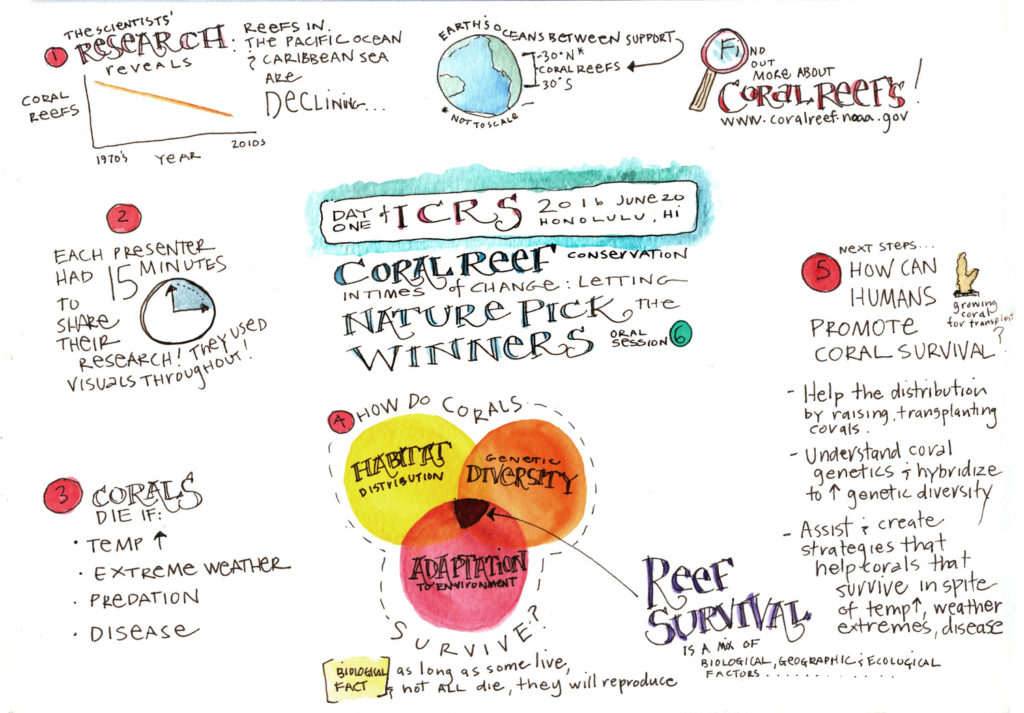 1 THE SCIENTISTS'
RESEARCH:
REVEALS
REEFS IN
THE PACIFIC OCEAN
& CARIBBEAN SEA
ARE
DECLINING...
CORAL
REEFS
1970's YEAR 2010s
EARTH'S OCEANS BETWEEN SUPPORT
-30°N*
CORAL REEFS
30°S
* NOT TO SCALE
FIND
OUT
MORE ABOUT
CORAL REEFS!
www.coralreef.noaa.gov
DAY
ONE of ICRS 2016 JUNE 20
HONOLULU, HI
CORAL REEF CONSERVATION
IN TIMES of CHANGE: LETTING
NATURE PICK THE
WINNERS ORAL
SESSION 6
2
EACH PRESENTER
HAD 15 MINUTES
TO
SHARE
THEIR
RESEARCH! THEY USED
VISUALS THROUGHOUT!
3 CORALS
DIE IF:
· TEMP ↑
· EXTREME WEATHER
· PREDATION
· DISEASE
4 HOW DO CORALS
HABITAT
DISTRIBUTION
GENETIC
DIVERSITY
ADAPTATION
TO ENVIRONMENT
SURVIVE?
BIOLOGICAL
FACT
as long as some live,
& not ALL die, they will reproduce
REEF
SURVIVAL
IS A MIX OF
BIOLOGICAL, GEOGRAPHIC & ECOLOGICAL
FACTORS.............
5 NEXT STEPS...
HOW CAN
HUMANS
PROMOTE
CORAL SURVIVAL?
growing
coral
for transplant
- Help the distribution
by raising, transplanting
corals.
- Understand coral
genetics & hybridize
to ↑ genetic diversity
- Assist & create
strategies that
help corals that
survive in spite
of temp↑, weather
extremes, disease